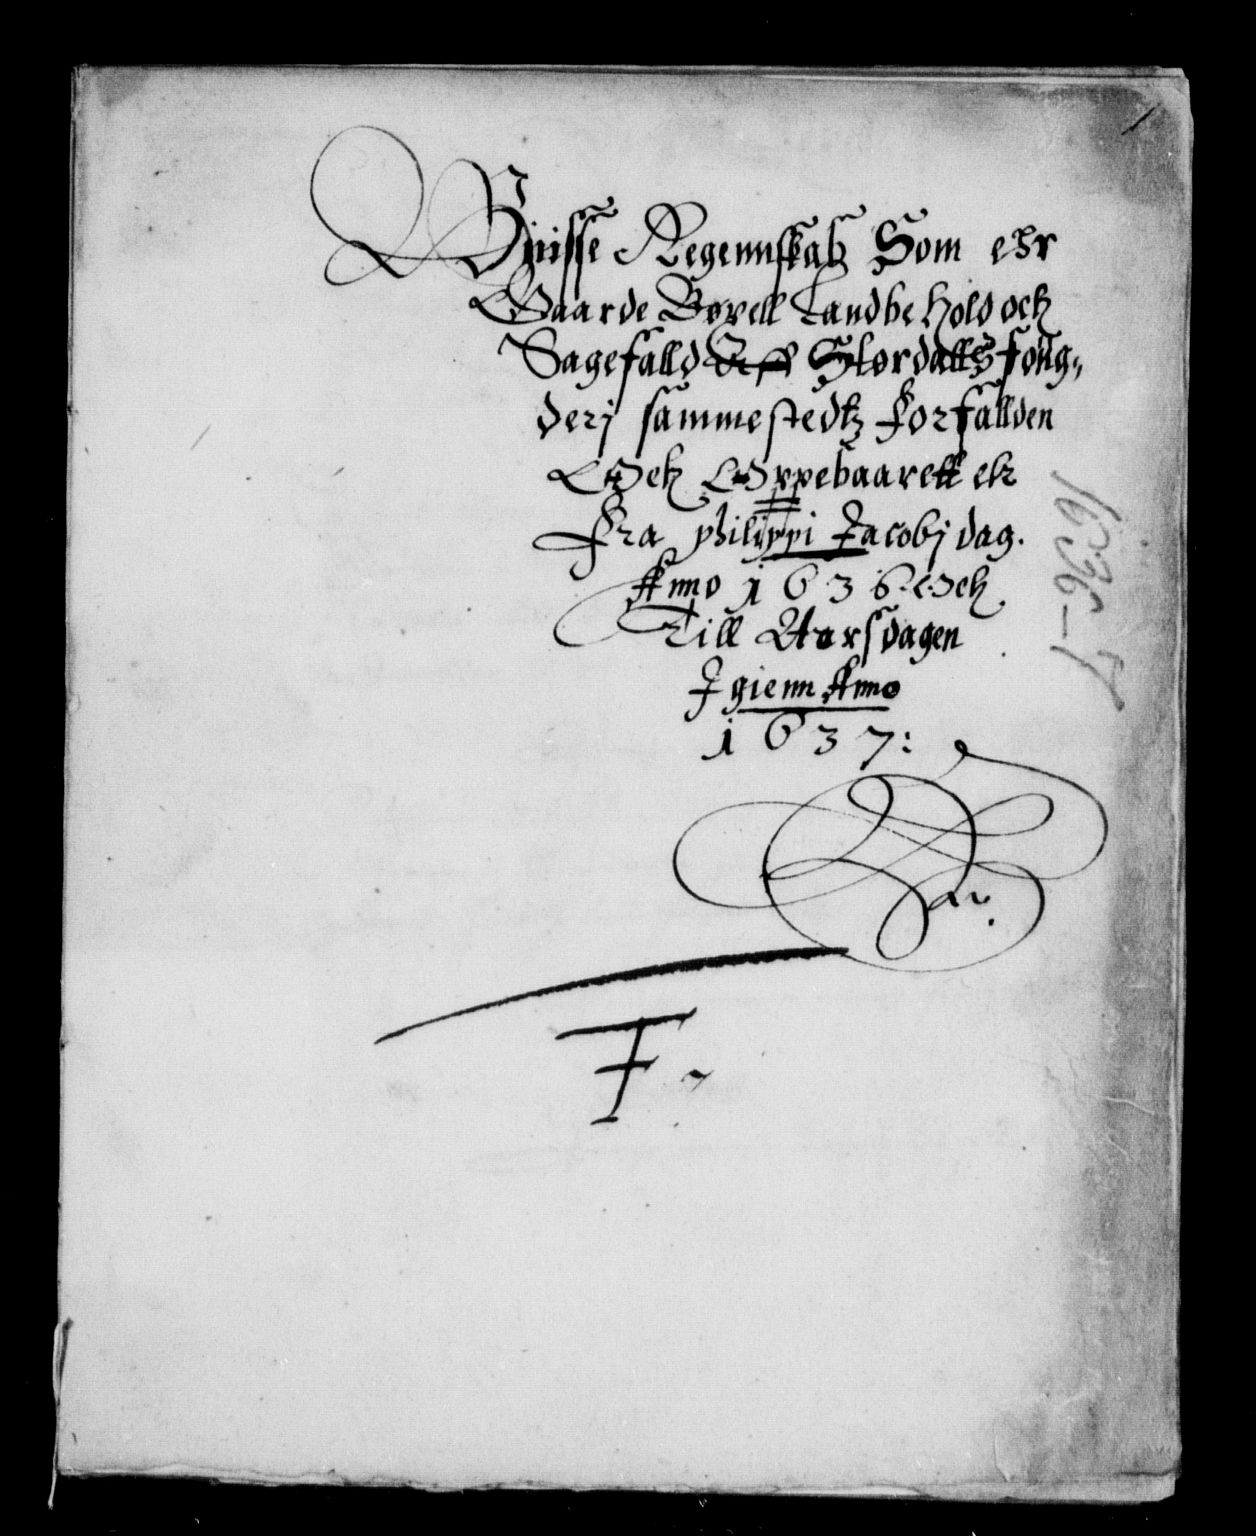 1
Uuisse Regennskab Som ehr
Gaarde Bøxell Landbe Hold och
Sagefalld Aff Størdallß foug-
derj sammestedtz Forfallden
Och Oppebaarett ehr
Fra philippi Jacobj dag.
Anno 1636. Och
Till Aarsdagen
Igienn Anno
1637:
1636-7
F